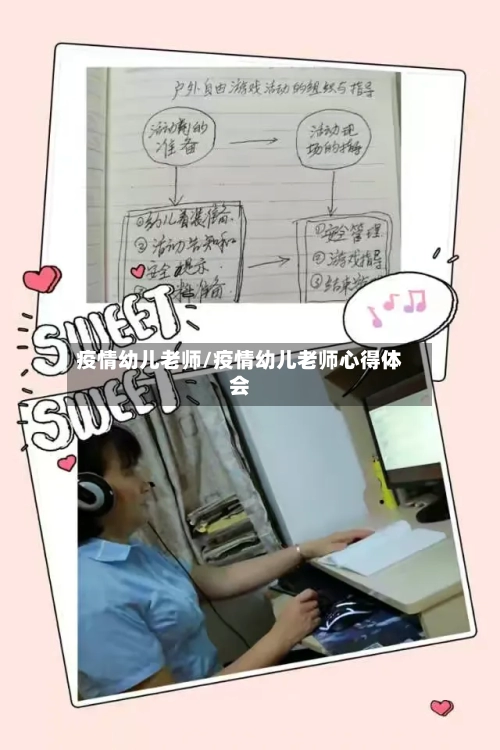 户外自由游戏活动的组织与指导
活动前的
准备
活动现
场的指导
①幼儿着装准备
②活动告知和
安全提示
料准备
①安全管理
②游戏指导
③结束
SWEET
疫情幼儿老师/疫情幼儿老师心得体
会
SWEET